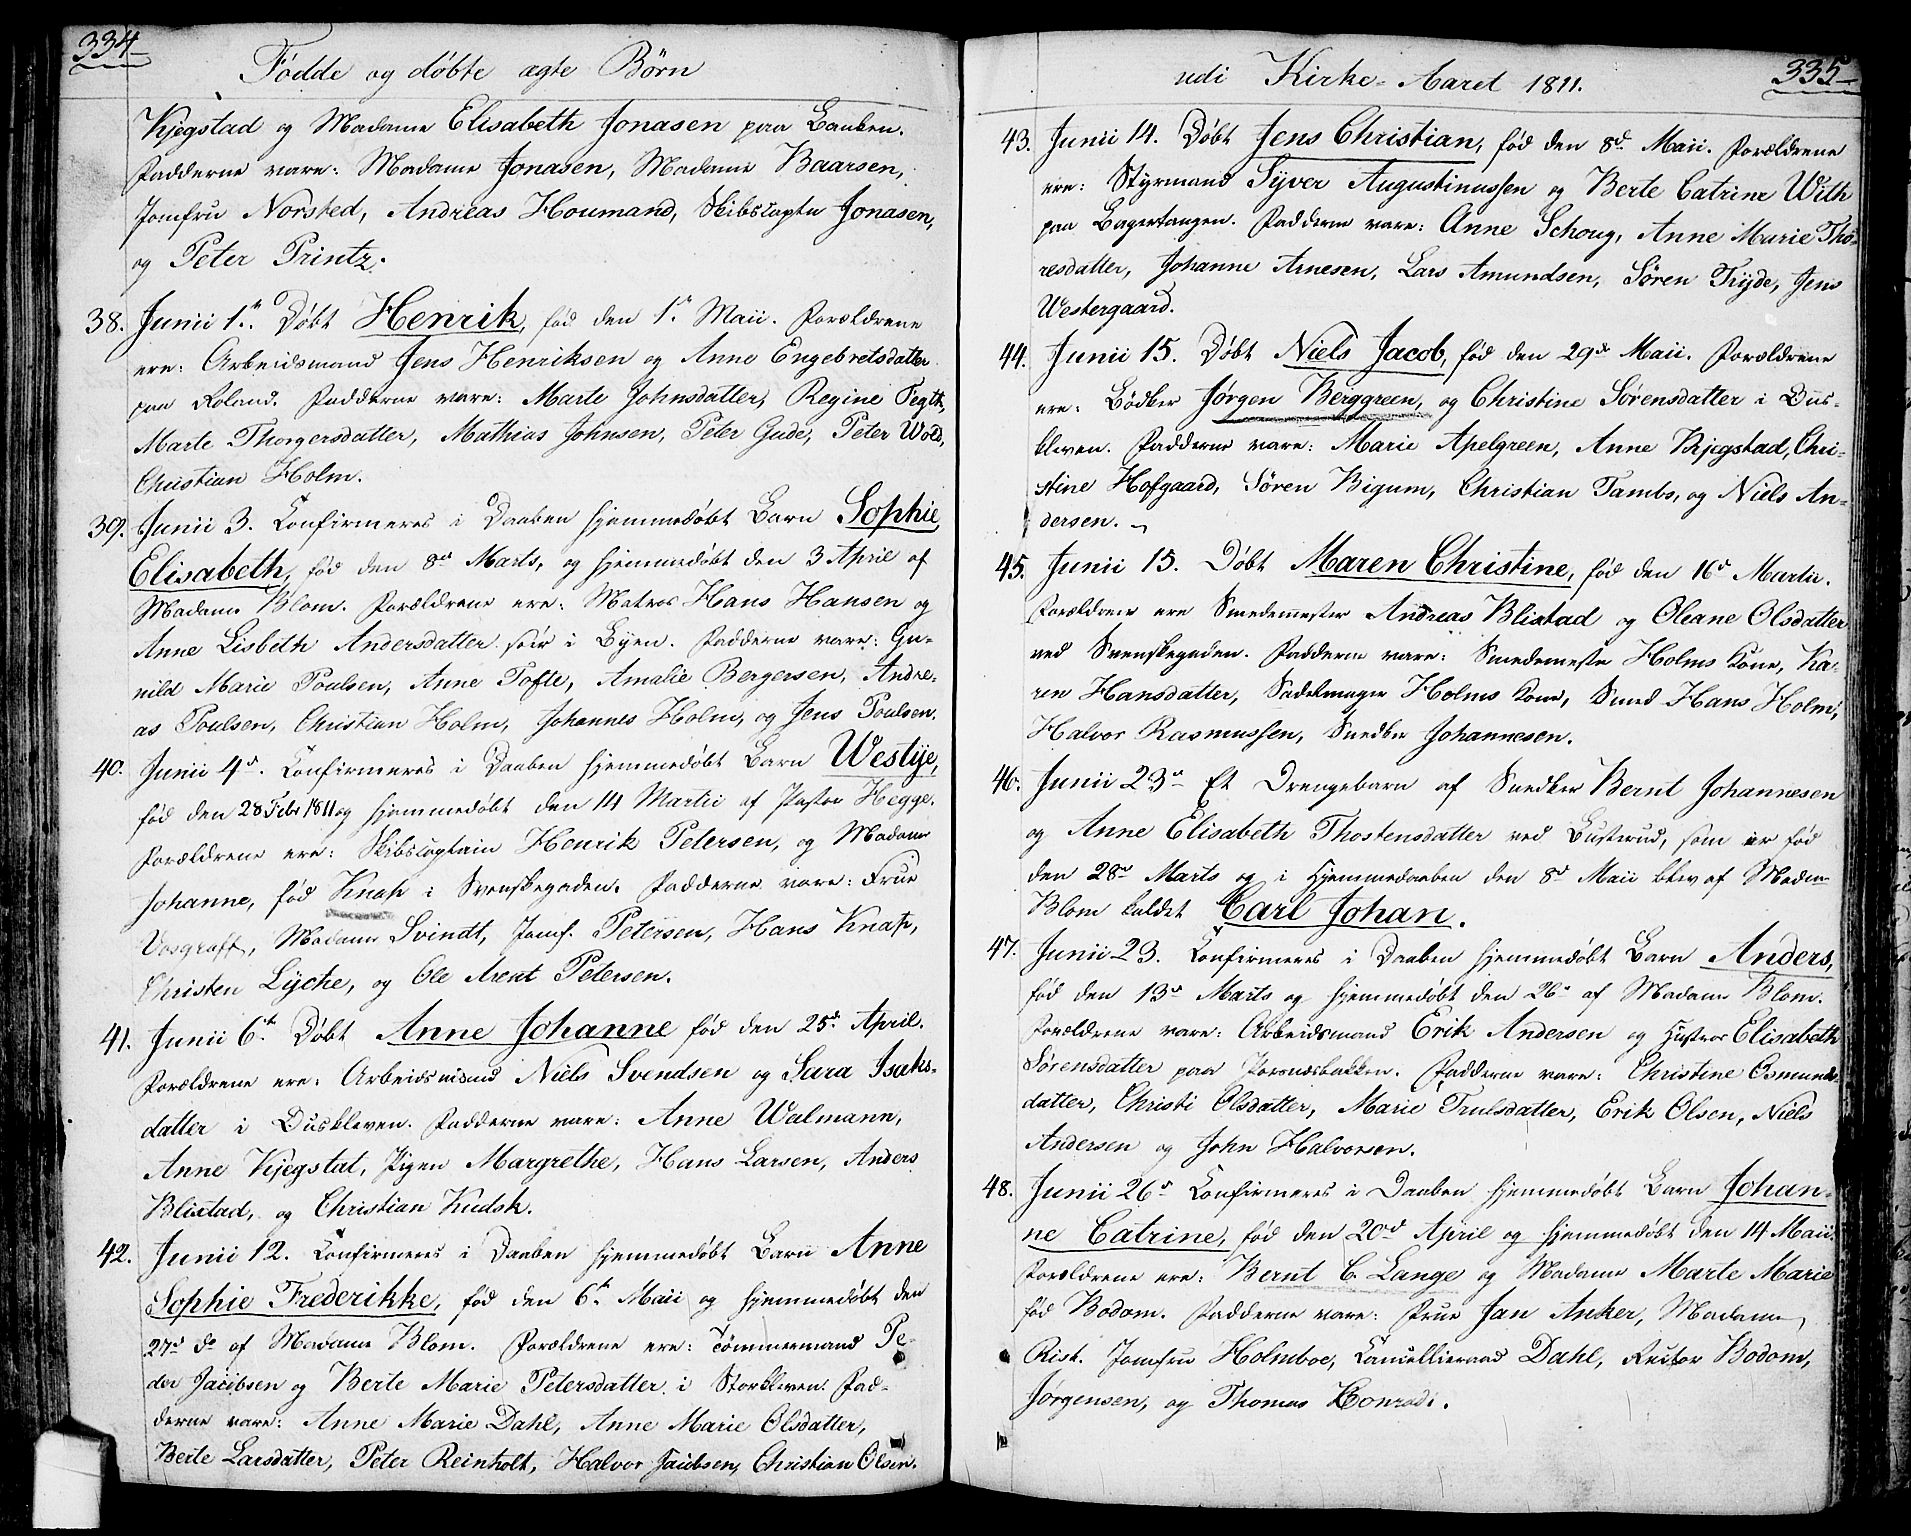 334
Fødde og døbte ægte Børn
Kjegstad og Madame Elisabeth Jonasen paa Banken.
Fadderne vare: Madame Jonasen, Madame Baarsen,
Jomfru Norsted, Andreas Houmand, Skibscaptn Jonasen,
og Peter Printz.
38. Junii 1. Døbt Henrik, fød den 1. Maii. Forældrene
ere: Arbeidsmand Jens Henriksen og Anne Engebretsdatter
paa Roland. Fadderne vare: Marte Johnsdatter, Regine
Marte Thorgersdatter, Mathias Johnsen, Peter Gude, Peter Wold,
Christian Holm.
39. Junii 3. Confirmeres i Daaben hjemmedøbt Barn Sophie
Elisabeth, fød den 8d Marts, og hjemmedøbt den 3 April af
Madame Blom. Forældrene ere: Matros Hans Hansen og
Anne Lisbeth Andersdatter her i Byen. Fadderne vare: Gu-
nild Marie Poulsen, Anne Tofte, Amalie Bergersen, Andre-
as Poulsen, Christian Holm, Johannes Holm, og Jens Poulsen.
40. Junii 4d. Confirmeres i Daaben hjemmedøbt Barn Westye,
fød den 28 Febr 1811 og hjemmedøbt den 14 Martii af Pastor Hegge.
Forældrene ere: Skibscaptain Henrik Petersen, og Madame
Johanne, fød Knap i Svenskegaden. Fadderne vare: Frue
Vosgraff, Madame Svindt, Jomf. Petersen, Hans Knap,
Christen Lyche, og Ole Arent Petersen.
41. Junii 6t. Døbt Anne Johanne fød den 25d April.
Forældrene ere: Arbeidsmand Niels Svendsen og Sara Isaks-
datter i Duskleven. Fadderne vare: Anne Walmann,
Anne Kjegstat, Pigen Margrethe, Hans Larsen, Anders
Blixtad, og Christian Kudsk.
42. Junii 12. Confirmeres i Daaben hjemmedøbt Barn Anne
Sophie Frederikke, fød den 6t Maii og hjemmedøbt den
27d do af Madame Blom. Forældrene ere: Tømmermand Pe-
der Jacobsen og Berte Marie Petersdatter i Storkleven. Fad-
derne vare: Anne Marie Dahl, Anne Marie Olsdatter,
Berte Larsdatter, Peter Reinholt, Halvor Jacobsen, Christian Olsen.
335
udi Kirke-Aaret 1811.
43. Junii 14. Døbt Jens Christian, fød den 8d Maii. Forældrene
ere: Styrmand Syver Augustinussen og Berte Catrine With
paa Bagertangen. Fadderne vare: Anne Schoug, Anne Marie Tho-
resdatter, Johanne Arnesen, Lars Amundsen, Søren Tryde, Jens
Westergaard.
44. Junii 15. Døbt Niels Jacob, fød den 29de Maii. Forældrene
ere: Bødker Jørgen Berggreen, og Christine Sørensdatter i Dus-
kleven. Fadderne vare: Marie Apelgreen, Anne Kjegstad, Chri-
stine Hofgaard, Søren Bigum, Christian Tambs, og Niels An-
dersen.
45. Junii 15. Døbt Maren Christine, fød den 16d Martii.
Forældrene ere Smedemester Andreas Blixtad og Oleane Olsdatter
ved Svenskegaden. Fadderne vare: Smedemester Holms Kone, Ka-
ren Hansdatter, Sadelmager Holms Kone, Smed Hans Holm,
Halvor Rasmussen, Snedker Johannesen.
46. Junii 23d Et Drengebarn af Snedker Bernt Johannesen
og Anne Elisabeth Thostensdatter ved Busterud, som er fød
den 28d Marts og i Hjemmedaaben den 8d Maii blev af Madam
Blom kaldet Carl Johan.
47. Junii 23. Confirmeres i Daaben hjemmedøbt Barn Anders,
fød den 13d Marts og hjemmedøbt den 26d af Madame Blom.
Forældrene vare: Arbeidsmand Erik Andersen og Hustroe Elisabeth
Sørensdatter paa Porsnæsbakken. Fadderne vare: Christine Osmunds-
datter, Christi Olsdatter, Marie Trulsdatter, Erik Olsen, Niels
Andersen og John Halvorsen.
48. Junii 26d Confirmeres i Daaben hjemmedøbt Barn Johan-
ne Catrine, fød den 20d April og hjemmedøbt den 14 Maii.
Forældrene ere: Bernt C. Lange og Madame Marte Marie
fød Bodom. Fadderne vare: Frue Jan Anker, Madame
Rist. Jomfru Holmboe, Cancellieraad Dahl, Rector Bodom,
Jørgensen, og Thomas Conradi.